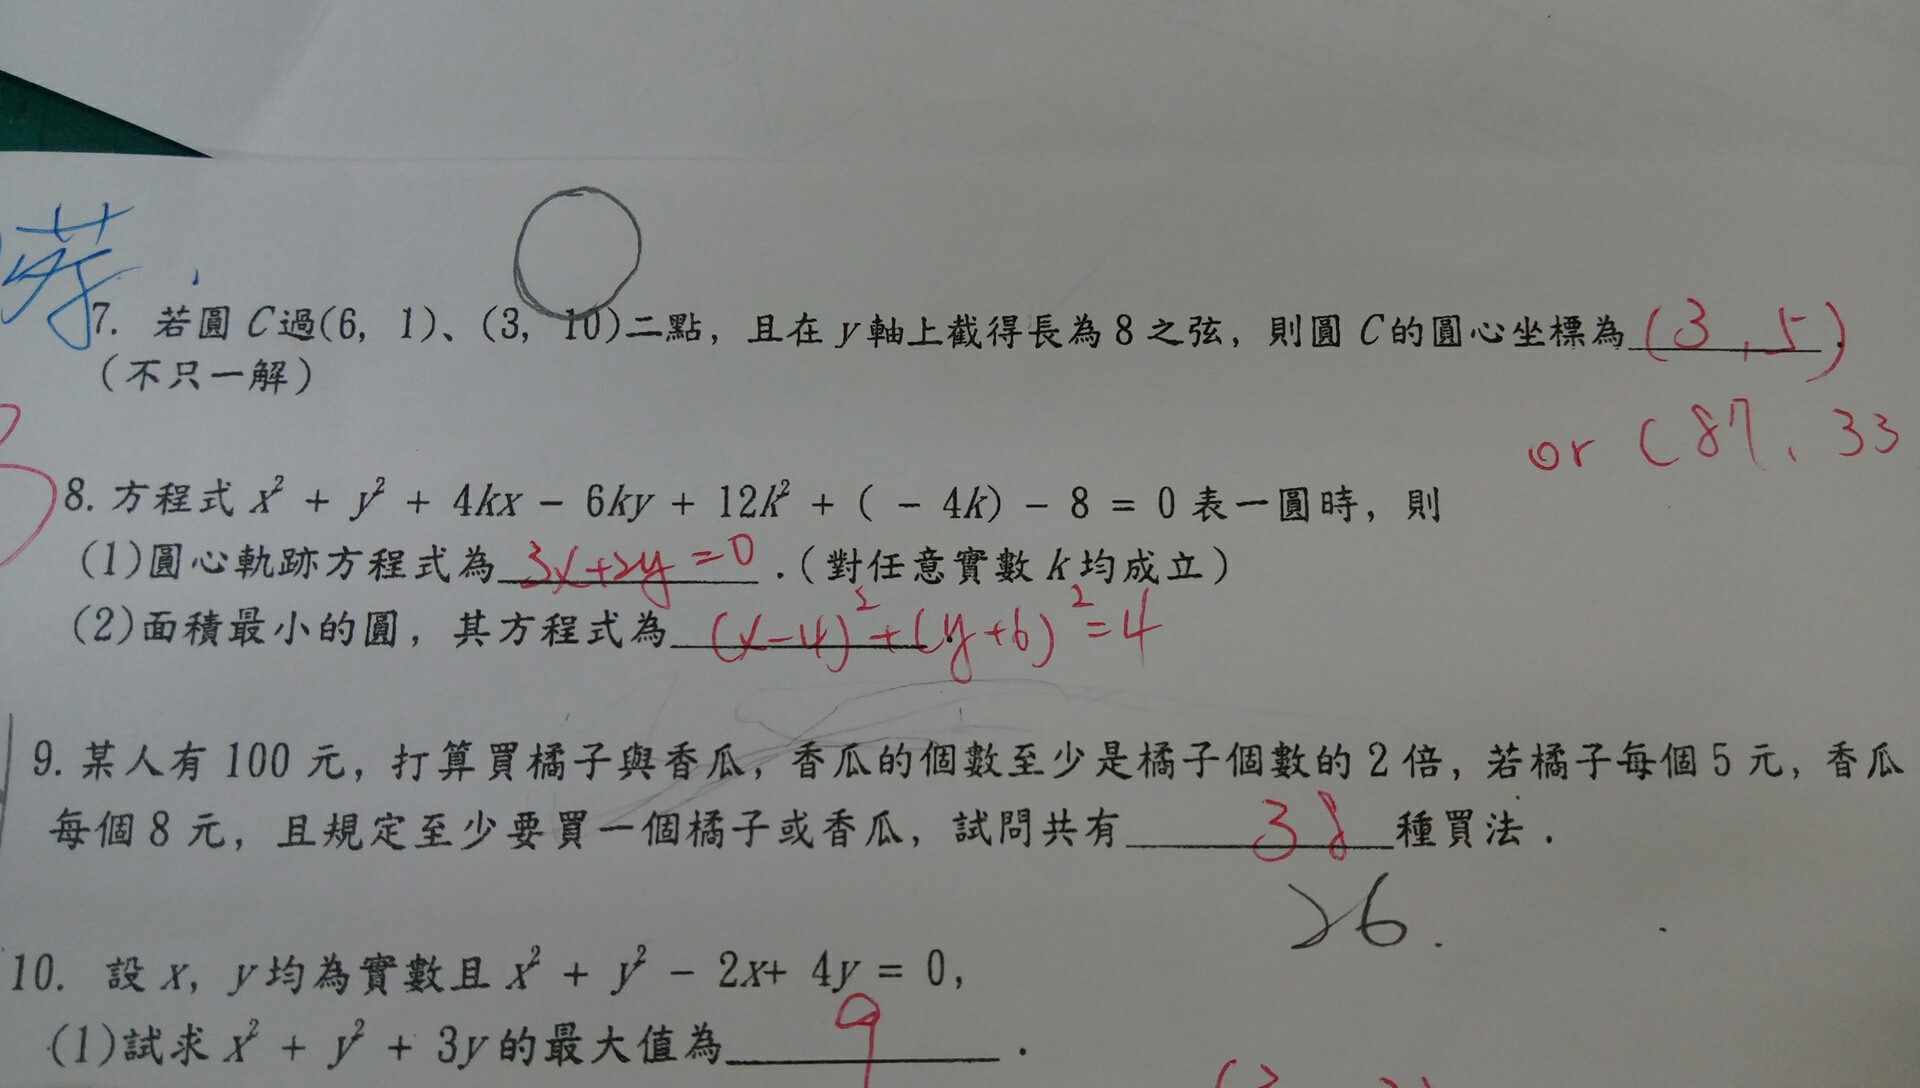 7. 若圓 C 過(6, 1)、(3, 10)二點，且在 y 軸上截得長為 8 之弦，則圓 C 的圓心坐標為 (3, 5).
(不只一解)
or (87, 33
8. 方程式 x² + y² + 4kx - 6ky + 12k² + ( - 4k) - 8 = 0 表一圓時，則
(1)圓心軌跡方程式為 3x+2y=0 .(對任意實數 k 均成立)
(2)面積最小的圓，其方程式為 (x-4)²+(y+6)²=4
9. 某人有 100 元，打算買橘子與香瓜，香瓜的個數至少是橘子個數的 2 倍，若橘子每個 5 元，香瓜
每個 8 元，且規定至少要買一個橘子或香瓜，試問共有 38 種買法．
26.
10. 設 x, y 均為實數且 x² + y² - 2x+ 4y = 0,
(1)試求 x² + y² + 3y 的最大值為 9 .